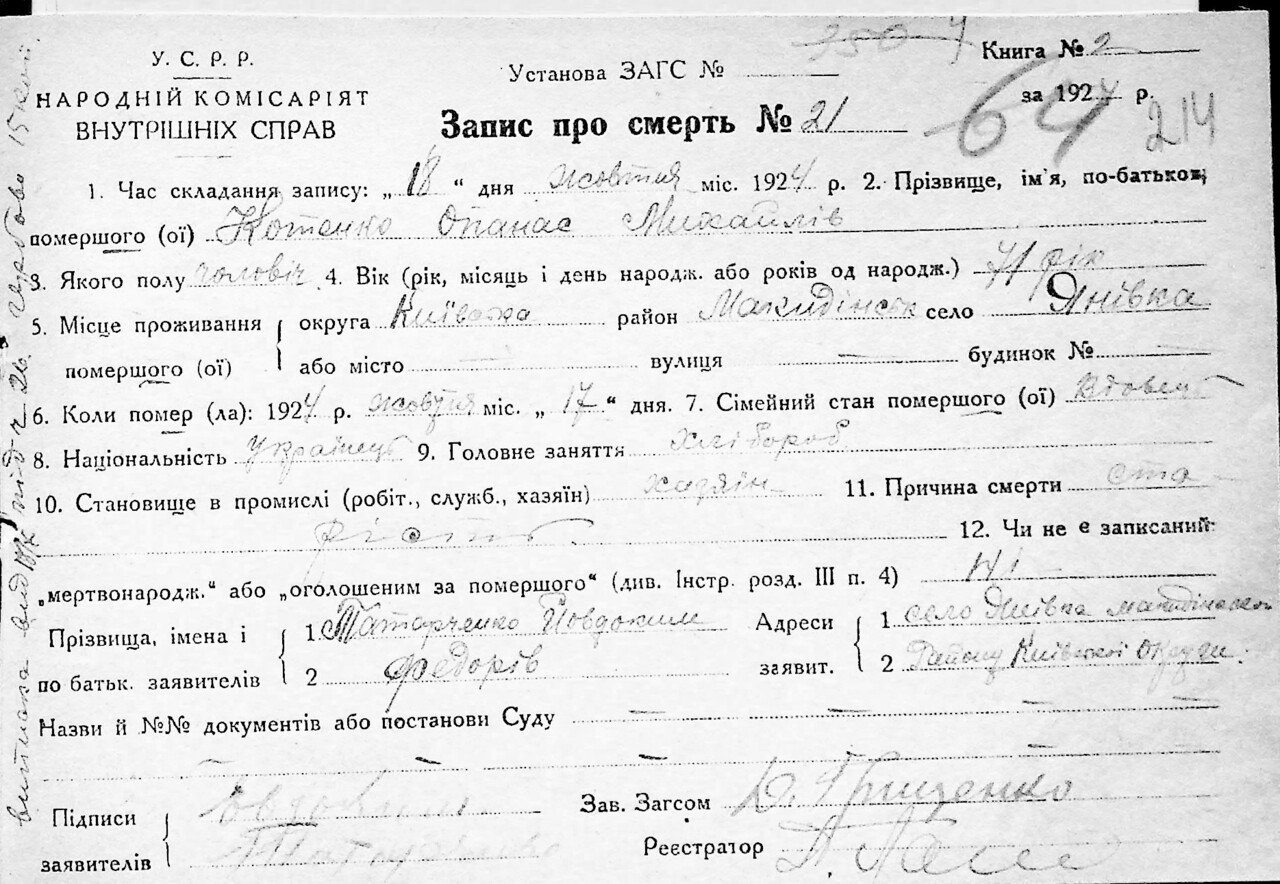 У. С. Р. Р.
НАРОДНІЙ КОМІСАРІЯТ
ВНУТРІШНІХ СПРАВ
Установа ЗАГС №
3504
Книга № 2
за 1924 р.
64
214
Запис про смерть № 21
1. Час складання запису: „ 18 “ дня жовтня міс. 1924 р. 2. Прізвище, ім'я, по-батькові
помершого (ої) Котенко Опанас Михайлів
3. Якого полу чоловіч 4. Вік (рік, місяць і день народж. або років од народж.) 71 рік
5. Місце проживання округа Київська район Макидінськ село Янівка
помершого (ої) або місто — вулиця — будинок № —
6. Коли помер (ла): 1924 р. жовтня міс. „ 17 “ дня. 7. Сімейний стан помершого (ої) Вдовець
8. Національність Українець 9. Головне заняття хлібороб
10. Становище в промислі (робіт., служб., хазяїн) хазяїн 11. Причина смерти ста
рість 12. Чи не є записаний
„мертвонародж.“ або „оголошеним за помершого“ (див. Інстр. розд. III п. 4) Ні
Прізвища, імена і 1 Татарченко Йовдоким Адреси 1 село Янівка
по батьк. заявителів 2 Федорів заявит. 2 Району Київської Округи.
Назви й №№ документів або постанови Суду — — — —
Підписи Овдоким Зав. Загсом Д. Грищенко
заявителів Татарченко Реєстратор